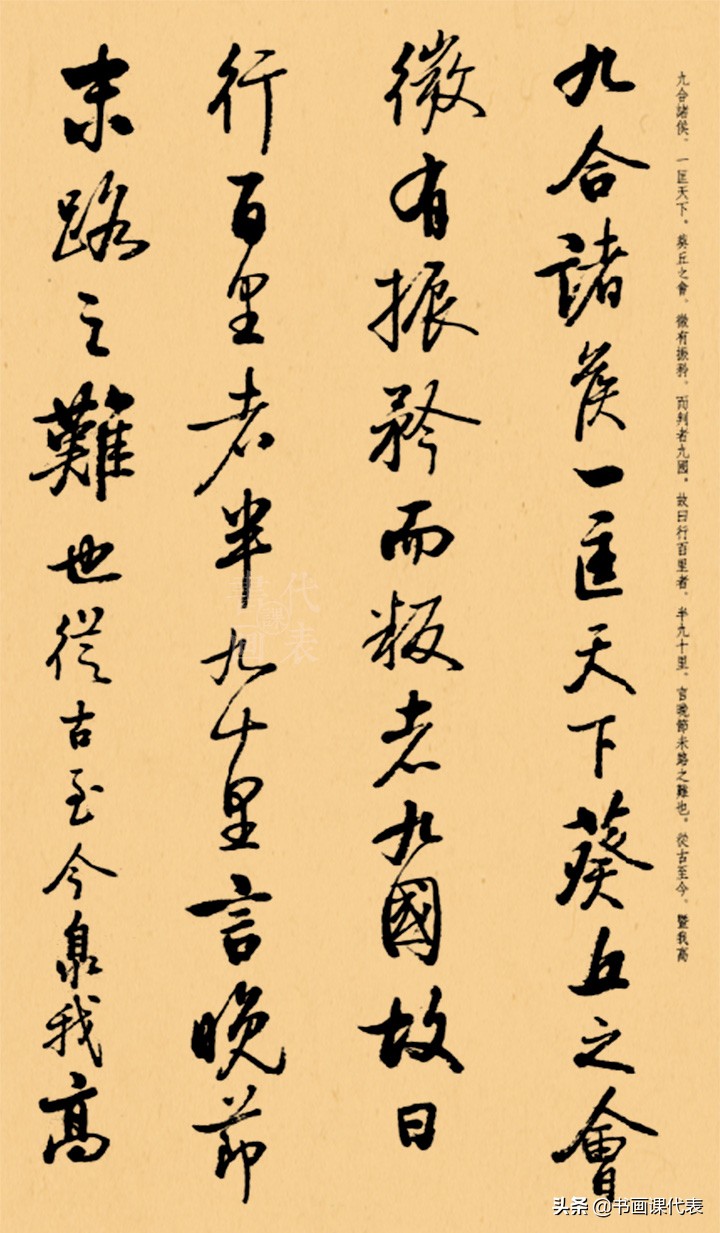 九合諸侯。一匡天下。葵丘之會。微有振矜。而判者九國。故曰行百里者。半九十里。官晚節末路之難也。從古至今。暨我高
九合諸侯一匡天下葵丘之會
微有振矜而叛者九國故曰
行百里者半九十里言晚節
末路之難也從古至今臮我高
代表
头条 @书画课代表